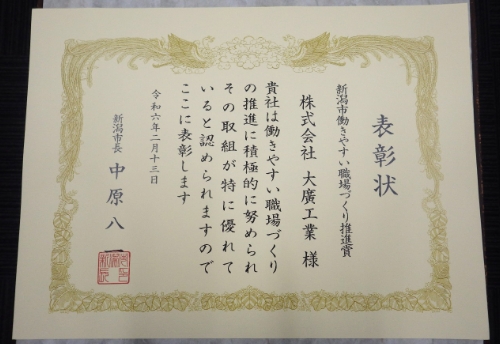 表彰状
新潟市働きやすい職場づくり推進賞
株式会社 大廣工業 様
貴社は働きやすい職場づくり
の推進に積極的に努められ
その取組が特に優れて
いると認められますので
ここに表彰します
令和六年二月十三日
新潟市長 中原八一